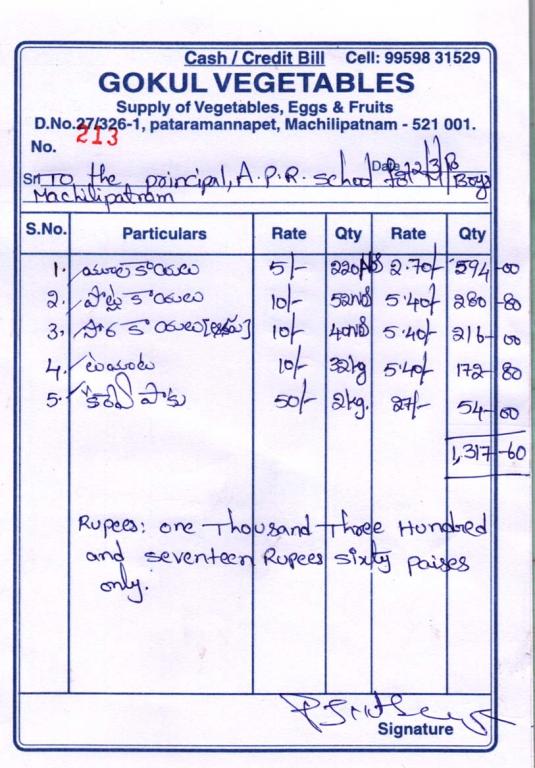 Cash / Credit Bill Cell: 99598 31529
GOKUL VEGETABLES
Supply of Vegetables, Eggs & Fruits
D.No.27/326-1, pataramannapet, Machilipatnam - 521 001.
No. 213
Date 12/3/13
Sri To the principal, A.P.R. school for M/Boys
Machilipatnam
S.No. Particulars Rate Qty Rate Qty
1. కాయలు 5/- 220NS 2.70/- 594-00
2. పొట్ల కాయలు 10/- 52NS 5.40/- 280-80
3. సొర కాయలు 10/- 40NS 5.40/- 216-00
4. టమాటా 10/- 32kg 5.40/- 172-80
5. కరివేపాకు 50/- 2kg. 27/- 54-00
1,317-60
Rupees: one Thousand Three Hundred
and seventeen Rupees sixty paises
only.
Signature